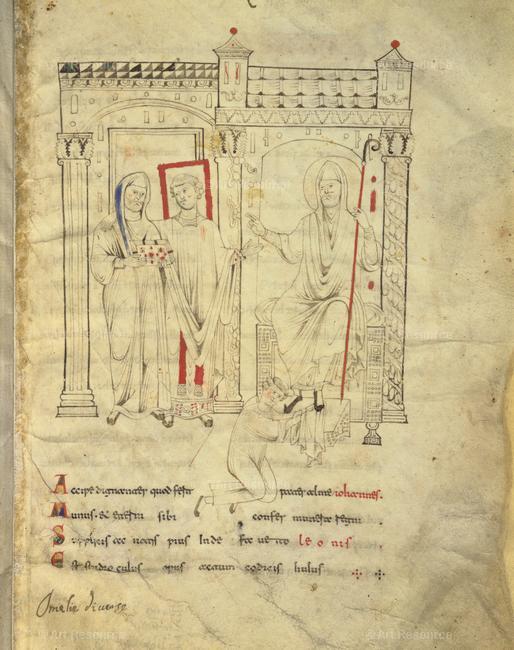 Accipe dignanter quod fert pater alme iohannes.
Munus. & eterni sibi confer munera regni .
Supplicis ac votis pius inde fa ve to leonis .
Est studio cuius opus actum codicis huius
Omelie diverse
© Art Resource
© Art Resource